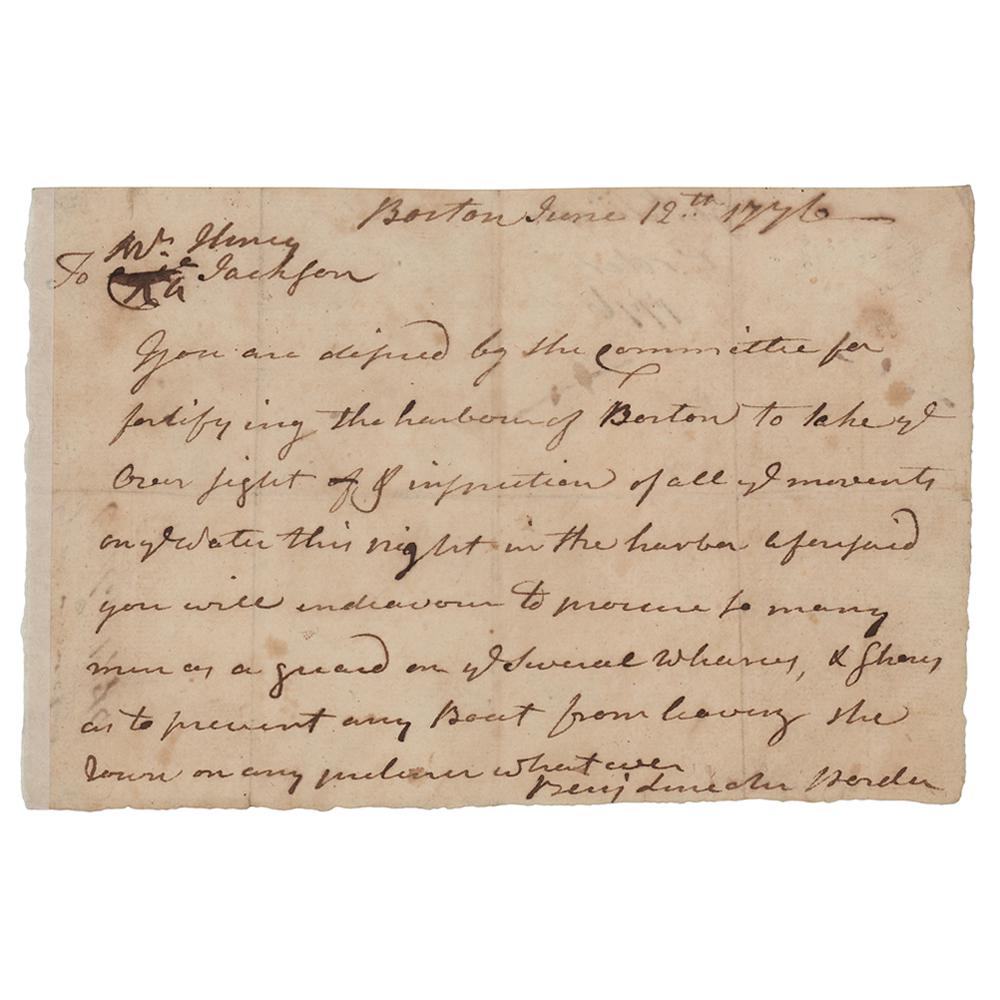 Boston June 12th 1776
Mr. Henry
To Jackson
You are desired by the committee for
fortifying the harbour of Boston to take ye
Over sight of & inspection of all ye movents
on ye Water this night in the harbor aforesaid
you will endeavour to procure so many
men as a guard on ye several Wharves, & Shores
as to prevent any Boat from leaving the
Town on any pretence whatever
Benj Lincoln Per order